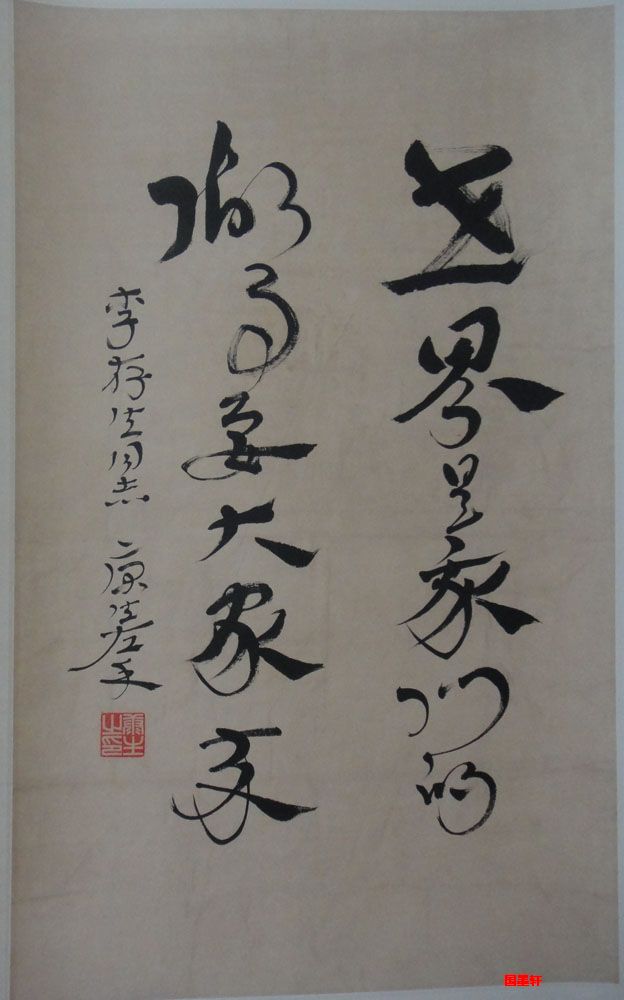 世界是我们的
做事要大家来
李存生同志 康生左手
康生之印
国墨轩